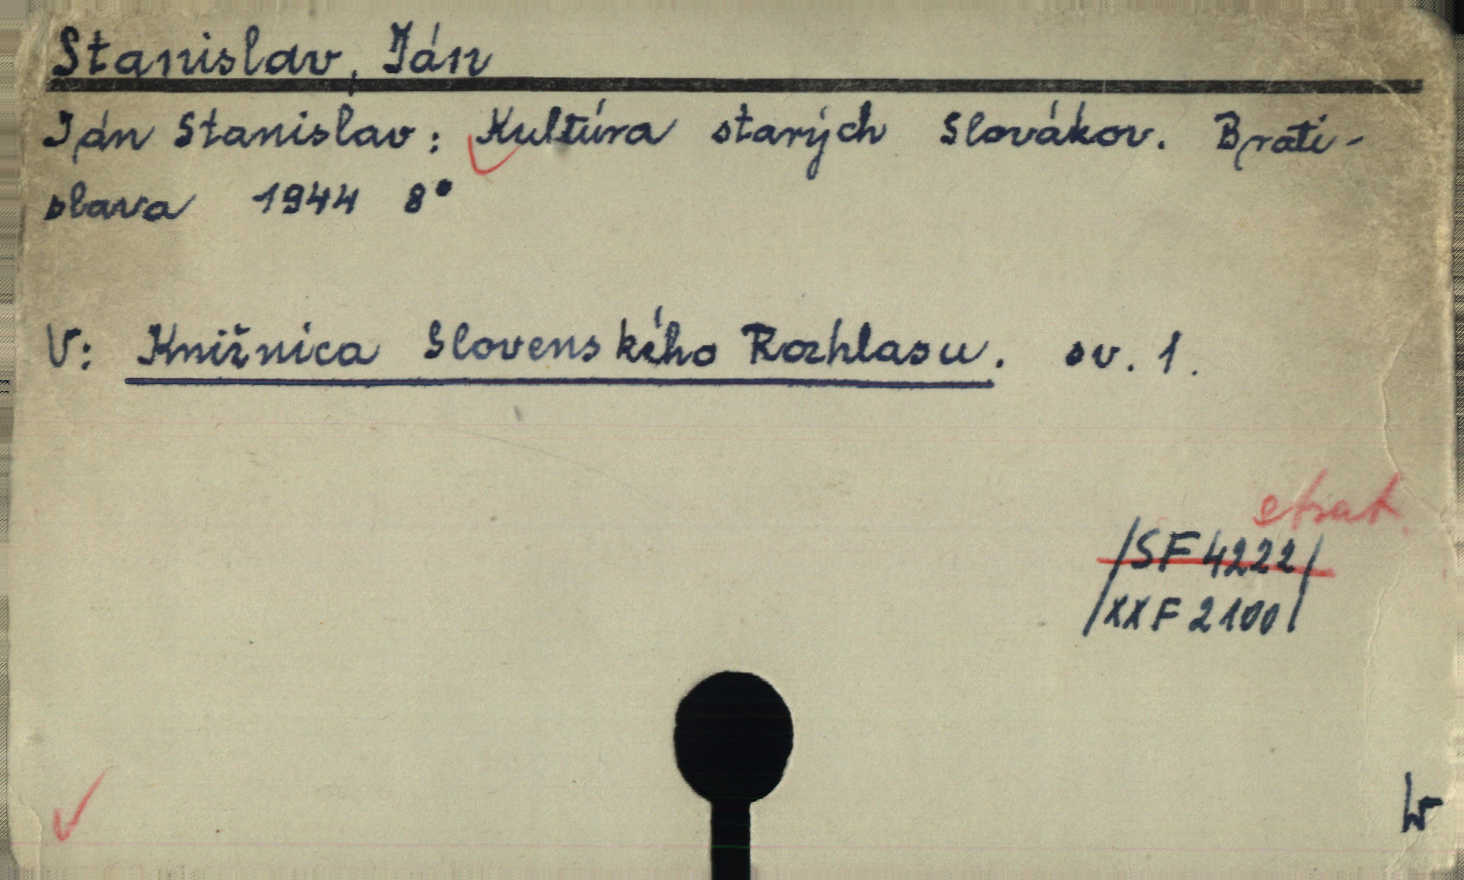 Stanislav, Ján
Ján Stanislav: Kultúra starých Slovákov. Brati-
slava 1944 8°
V: Knižnica Slovenského Rozhlasu. sv. 1.
/SF 4222/
/XXF 2100/